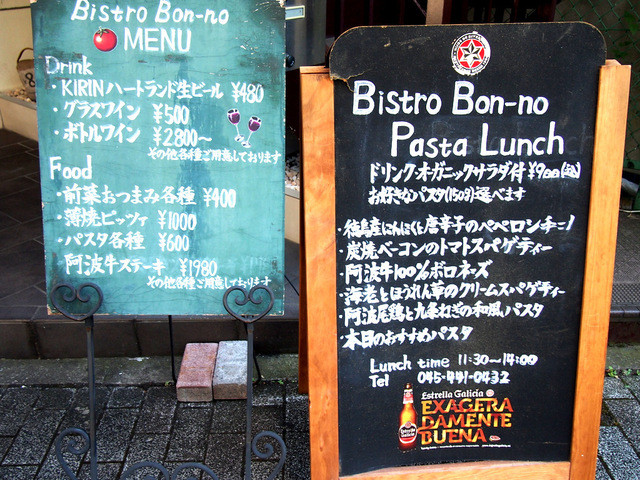 Bistro Bon-no
MENU
Drink
・KIRINハートランド生ビール ¥480
・グラスワイン ¥500
・ボトルワイン ¥2.800〜
その他各種ご用意しております
Food
・前菜おつまみ各種 ¥400
・薄焼ピッツァ ¥1000
・パスタ各種 ¥600
阿波牛ステーキ ¥1980
その他各種ご用意しております
Bistro Bon-no
Pasta Lunch
ドリンク・オーガニックサラダ付 ¥900(込)
お好きなパスタ(150g)選べます
・徳島産にんにくと唐辛子のペペロンチーノ
・炭焼ベーコンのトマトスパゲティー
・阿波牛100%ボロネーズ
・海老とほうれん草のクリームスパゲティー
・阿波尾鶏と九条ねぎの和風パスタ
・本日のおすすめパスタ
Lunch time 11:30〜14:00
Tel 045-441-0432
Estrella Galicia
EXAGERA
DAMENTE
BUENA